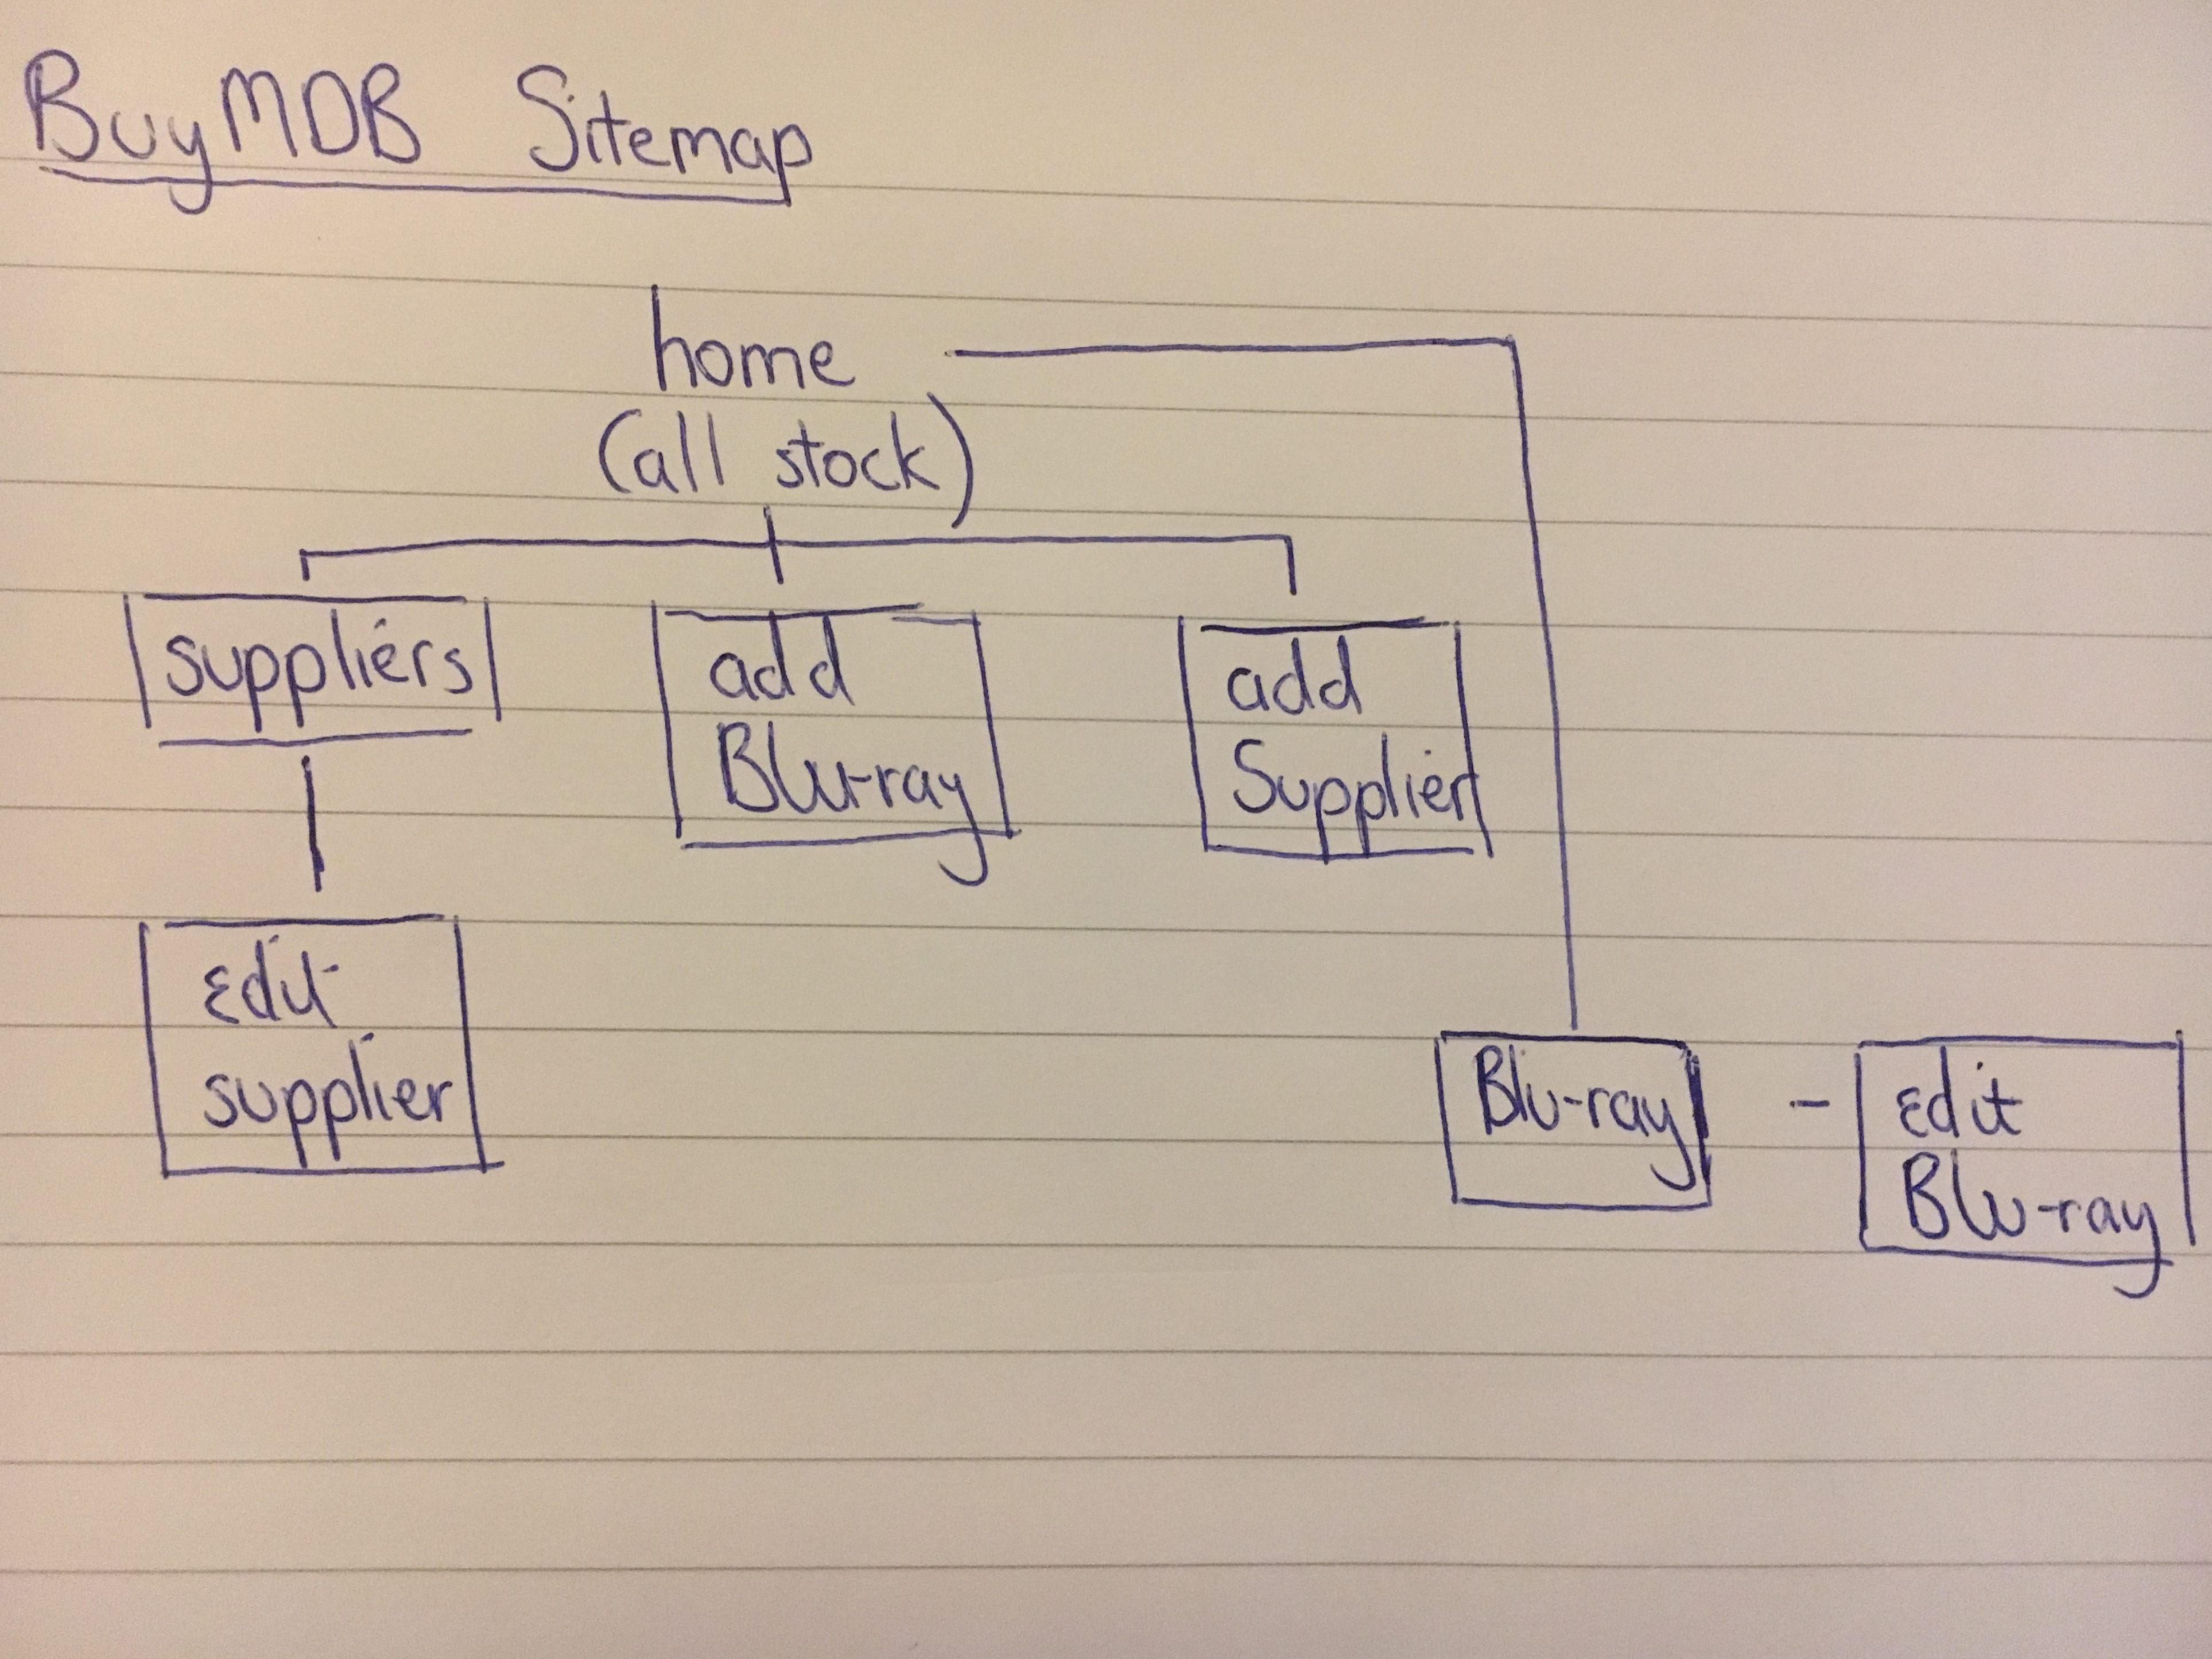 BuyMDB Sitemap
home
(all stock)
suppliers
add
Blu-ray
add
Supplier
Edit
supplier
Blu-ray
Edit
Blu-ray